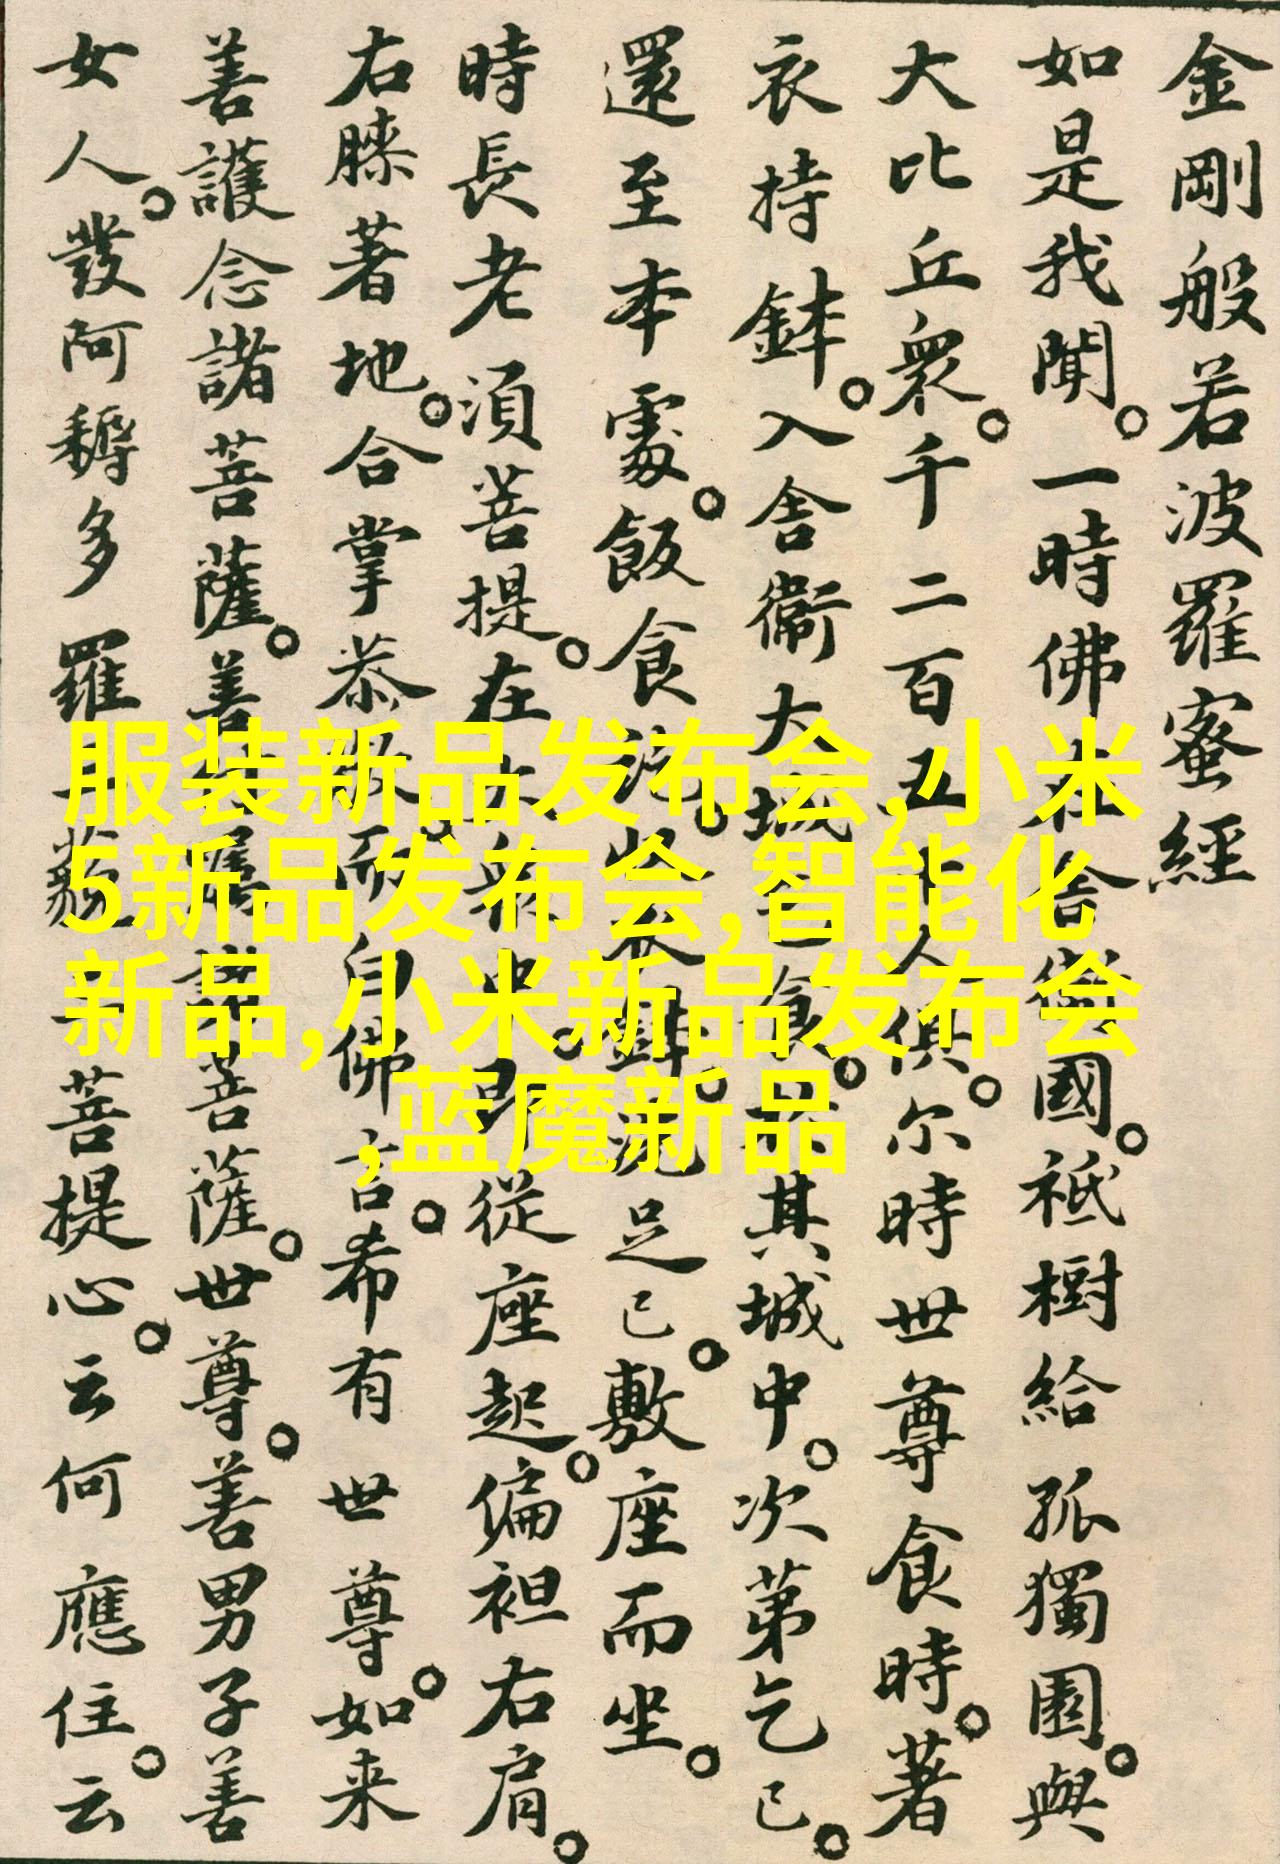 金剛般若波羅蜜經
如是我聞。一時佛在舍衛國。祇樹給孤獨園。與
大比丘衆。千二百五十人俱。尔時世尊食時。著
衣持鉢。入舍衛大城乞食。於其城中。次第乞已。
還至本處。飯食訖。收衣鉢。洗足已。敷座而坐。
時長老須菩提。在大衆中。即從座起。偏袒右肩。
右膝著地。合掌恭敬。而白佛言。希有世尊。如来
善護念諸菩薩。善付囑諸菩薩。世尊。善男子善
女人。發阿耨多羅三藐三菩提心。云何應住。云
服装新品发布会,小米
5新品发布会,智能化
新品,小米新品发布会
,蓝魔新品